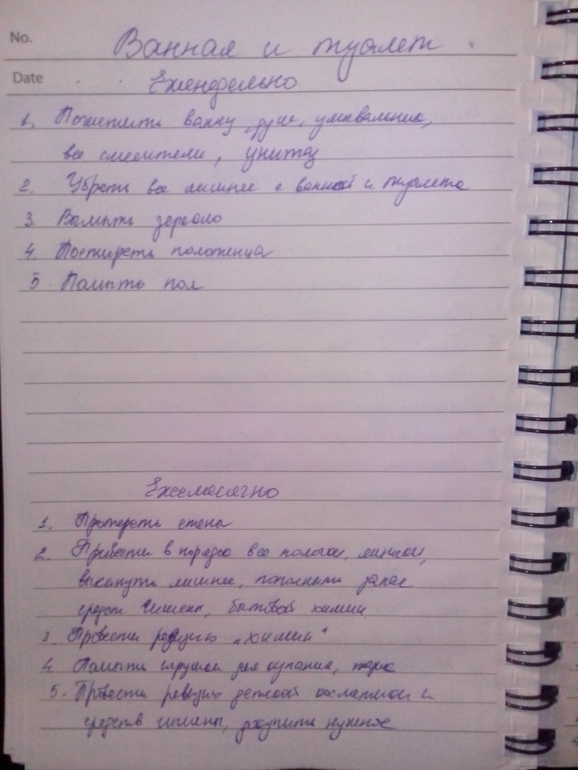 No. Ванная и туалет
Date Еженедельно
1. Почистить ванну, душ, умывальник,
все смесители, унитаз
2. Убрать все лишнее с ванной и туалета
3. Вымыть зеркало
4. Постирать полотенца
5. Помыть пол
Ежемесячно
1. Протереть стены
2. Привести в порядок все полочки, ящики,
выкинуть лишнее, пополнить запас
средств гигиены, бытовой химии
3. Провести ревизию "химии"
4. Помыть игрушки для купания,
5. Провести ревизию детской косметики и
средств гигиены, докупить нужное